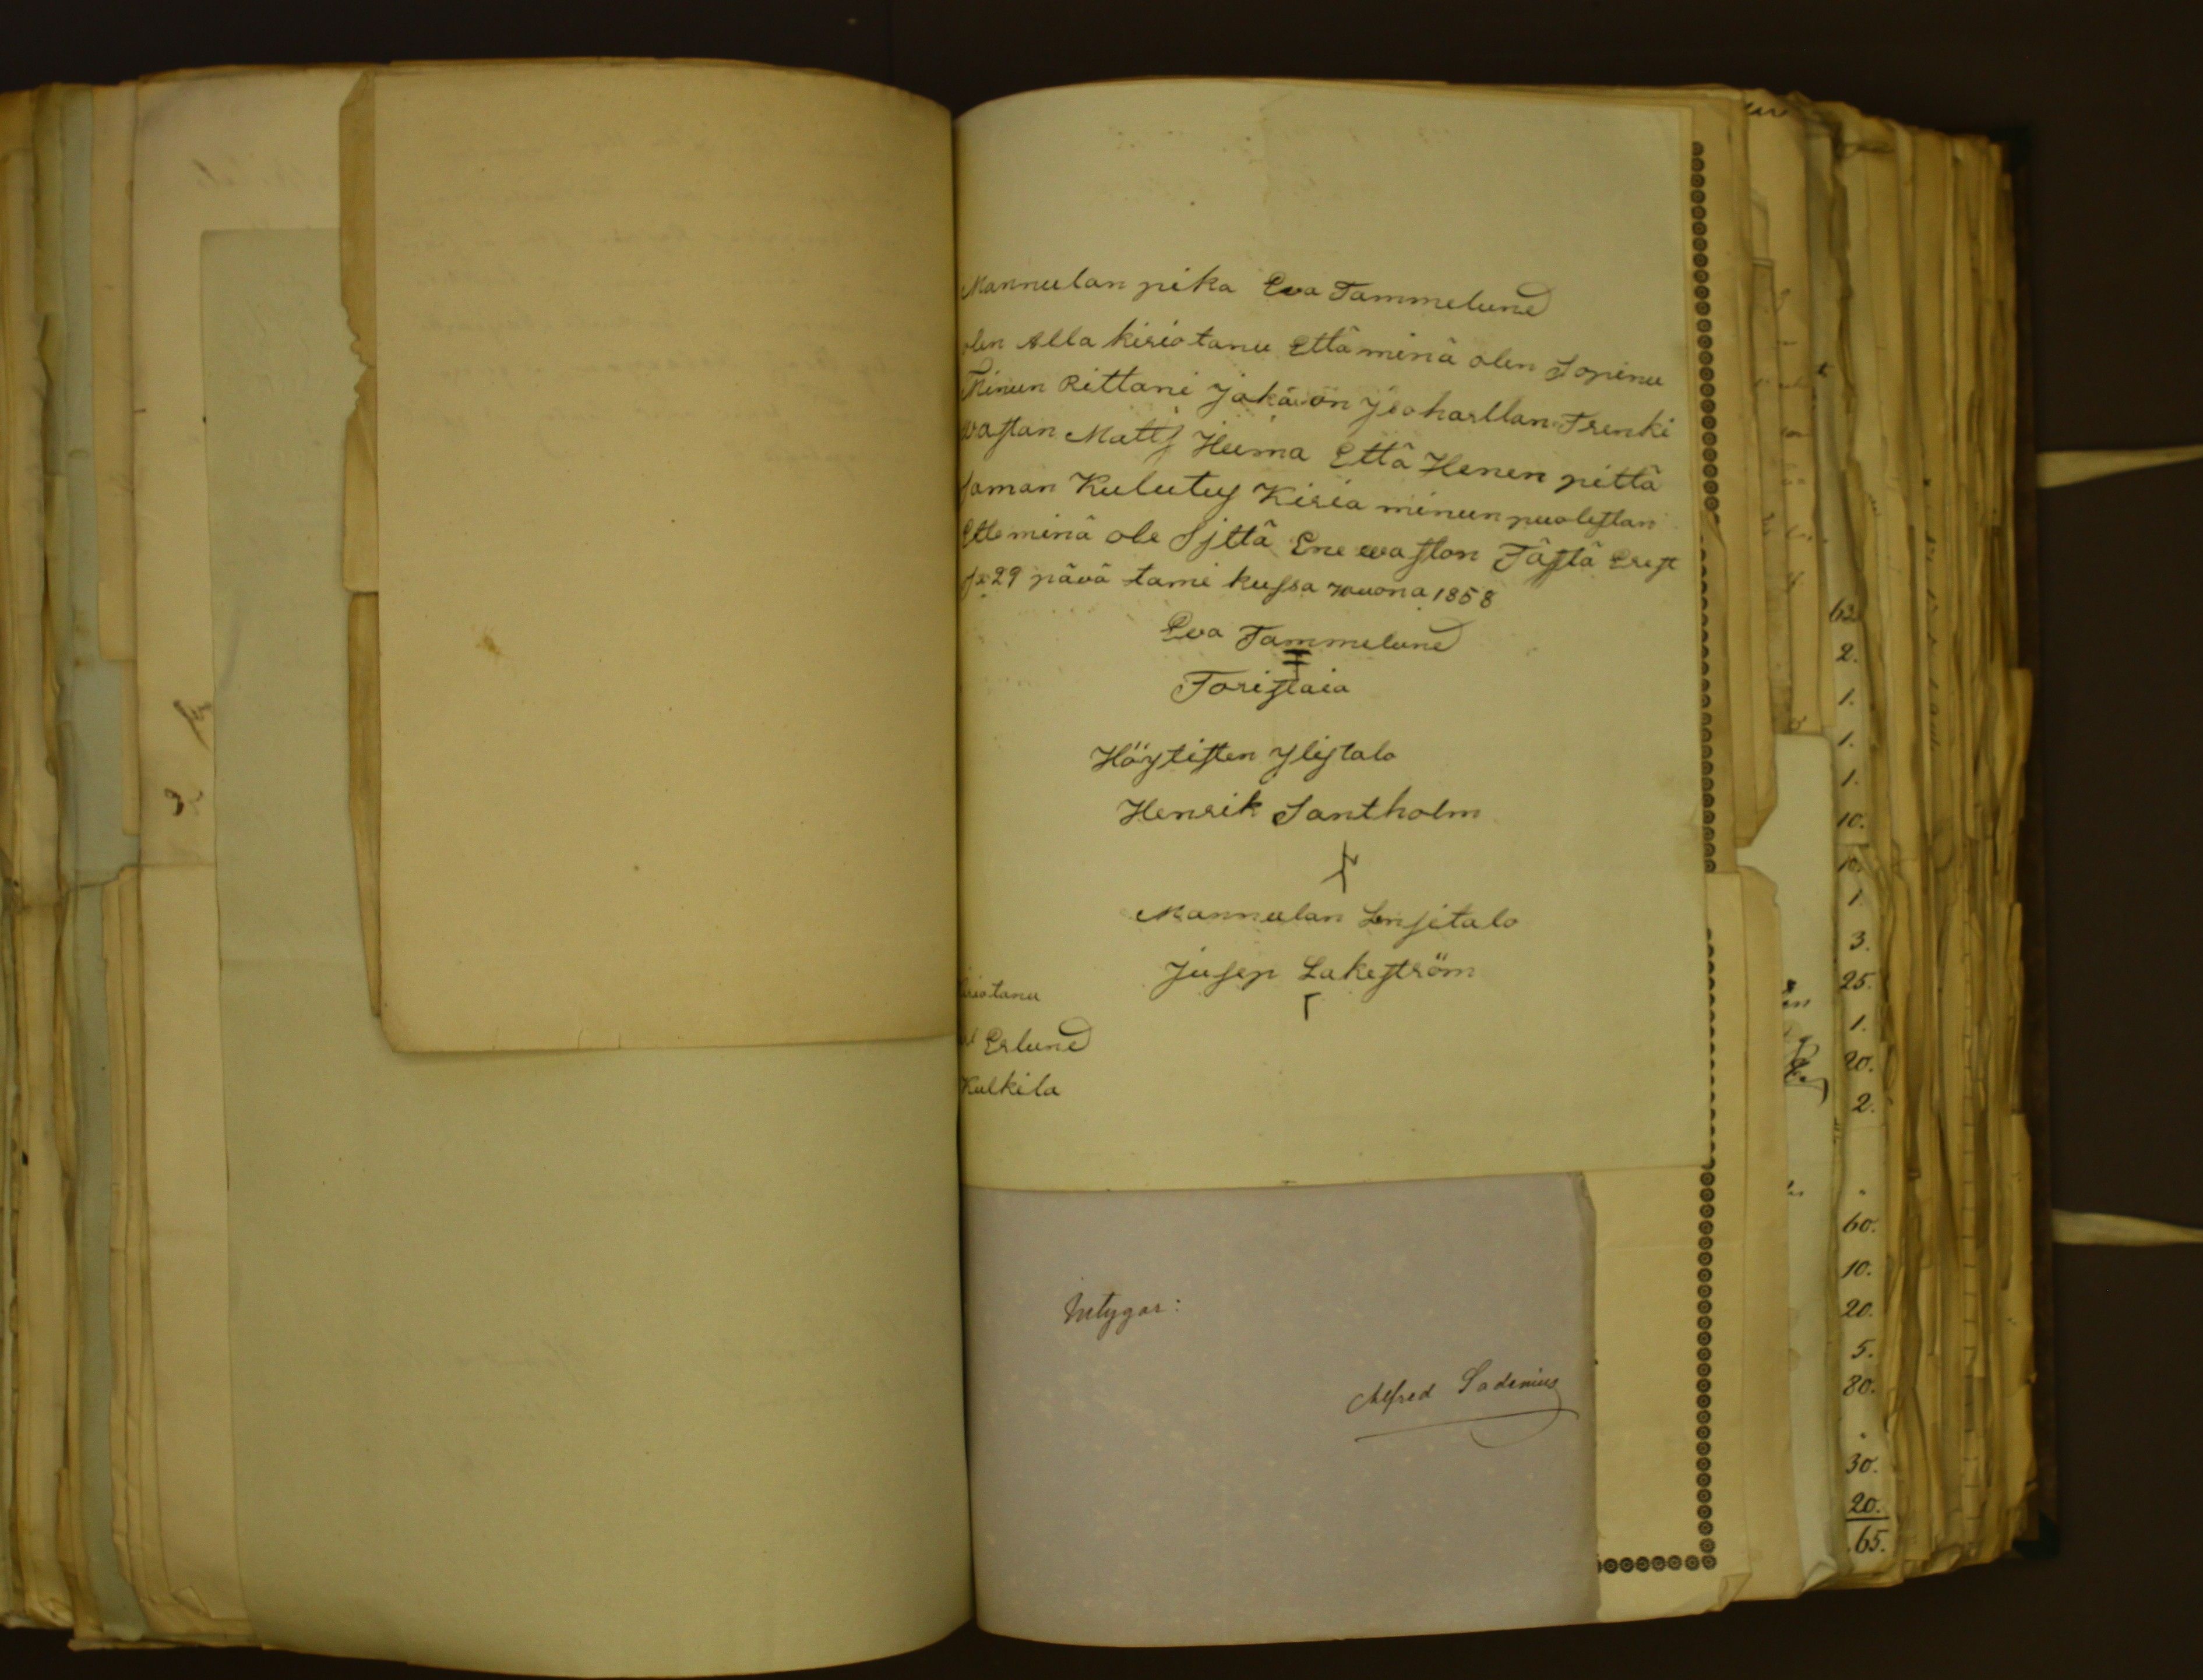 Mannulan pika Eva Tammelund
olen Alla kiriotanu Että minä olen Sopinu
Minun Rittani jaka on Jsoharllan Trenki
wastan Matts Heima Että Henen pittä
saman Kulutus Kiria minun puolestan
Ette minä ole Sjttä Ene wastan Tästä Erest
29 pävä tami kussa wuona 1858
Eva Tammelund
Toristaia
Höystisten Ylistalo
Henrik Santholm
Mannulan Ensitalo
Jusep Lakeström
kiriotanu
Erlund
Kulkila
Intygar:
Alfred Sadenius
62
2.
1.
1.
1.
10.
10.
1
3.
25.
1.
20.
2.
60.
10.
20.
5.
80.
30.
20.
65.